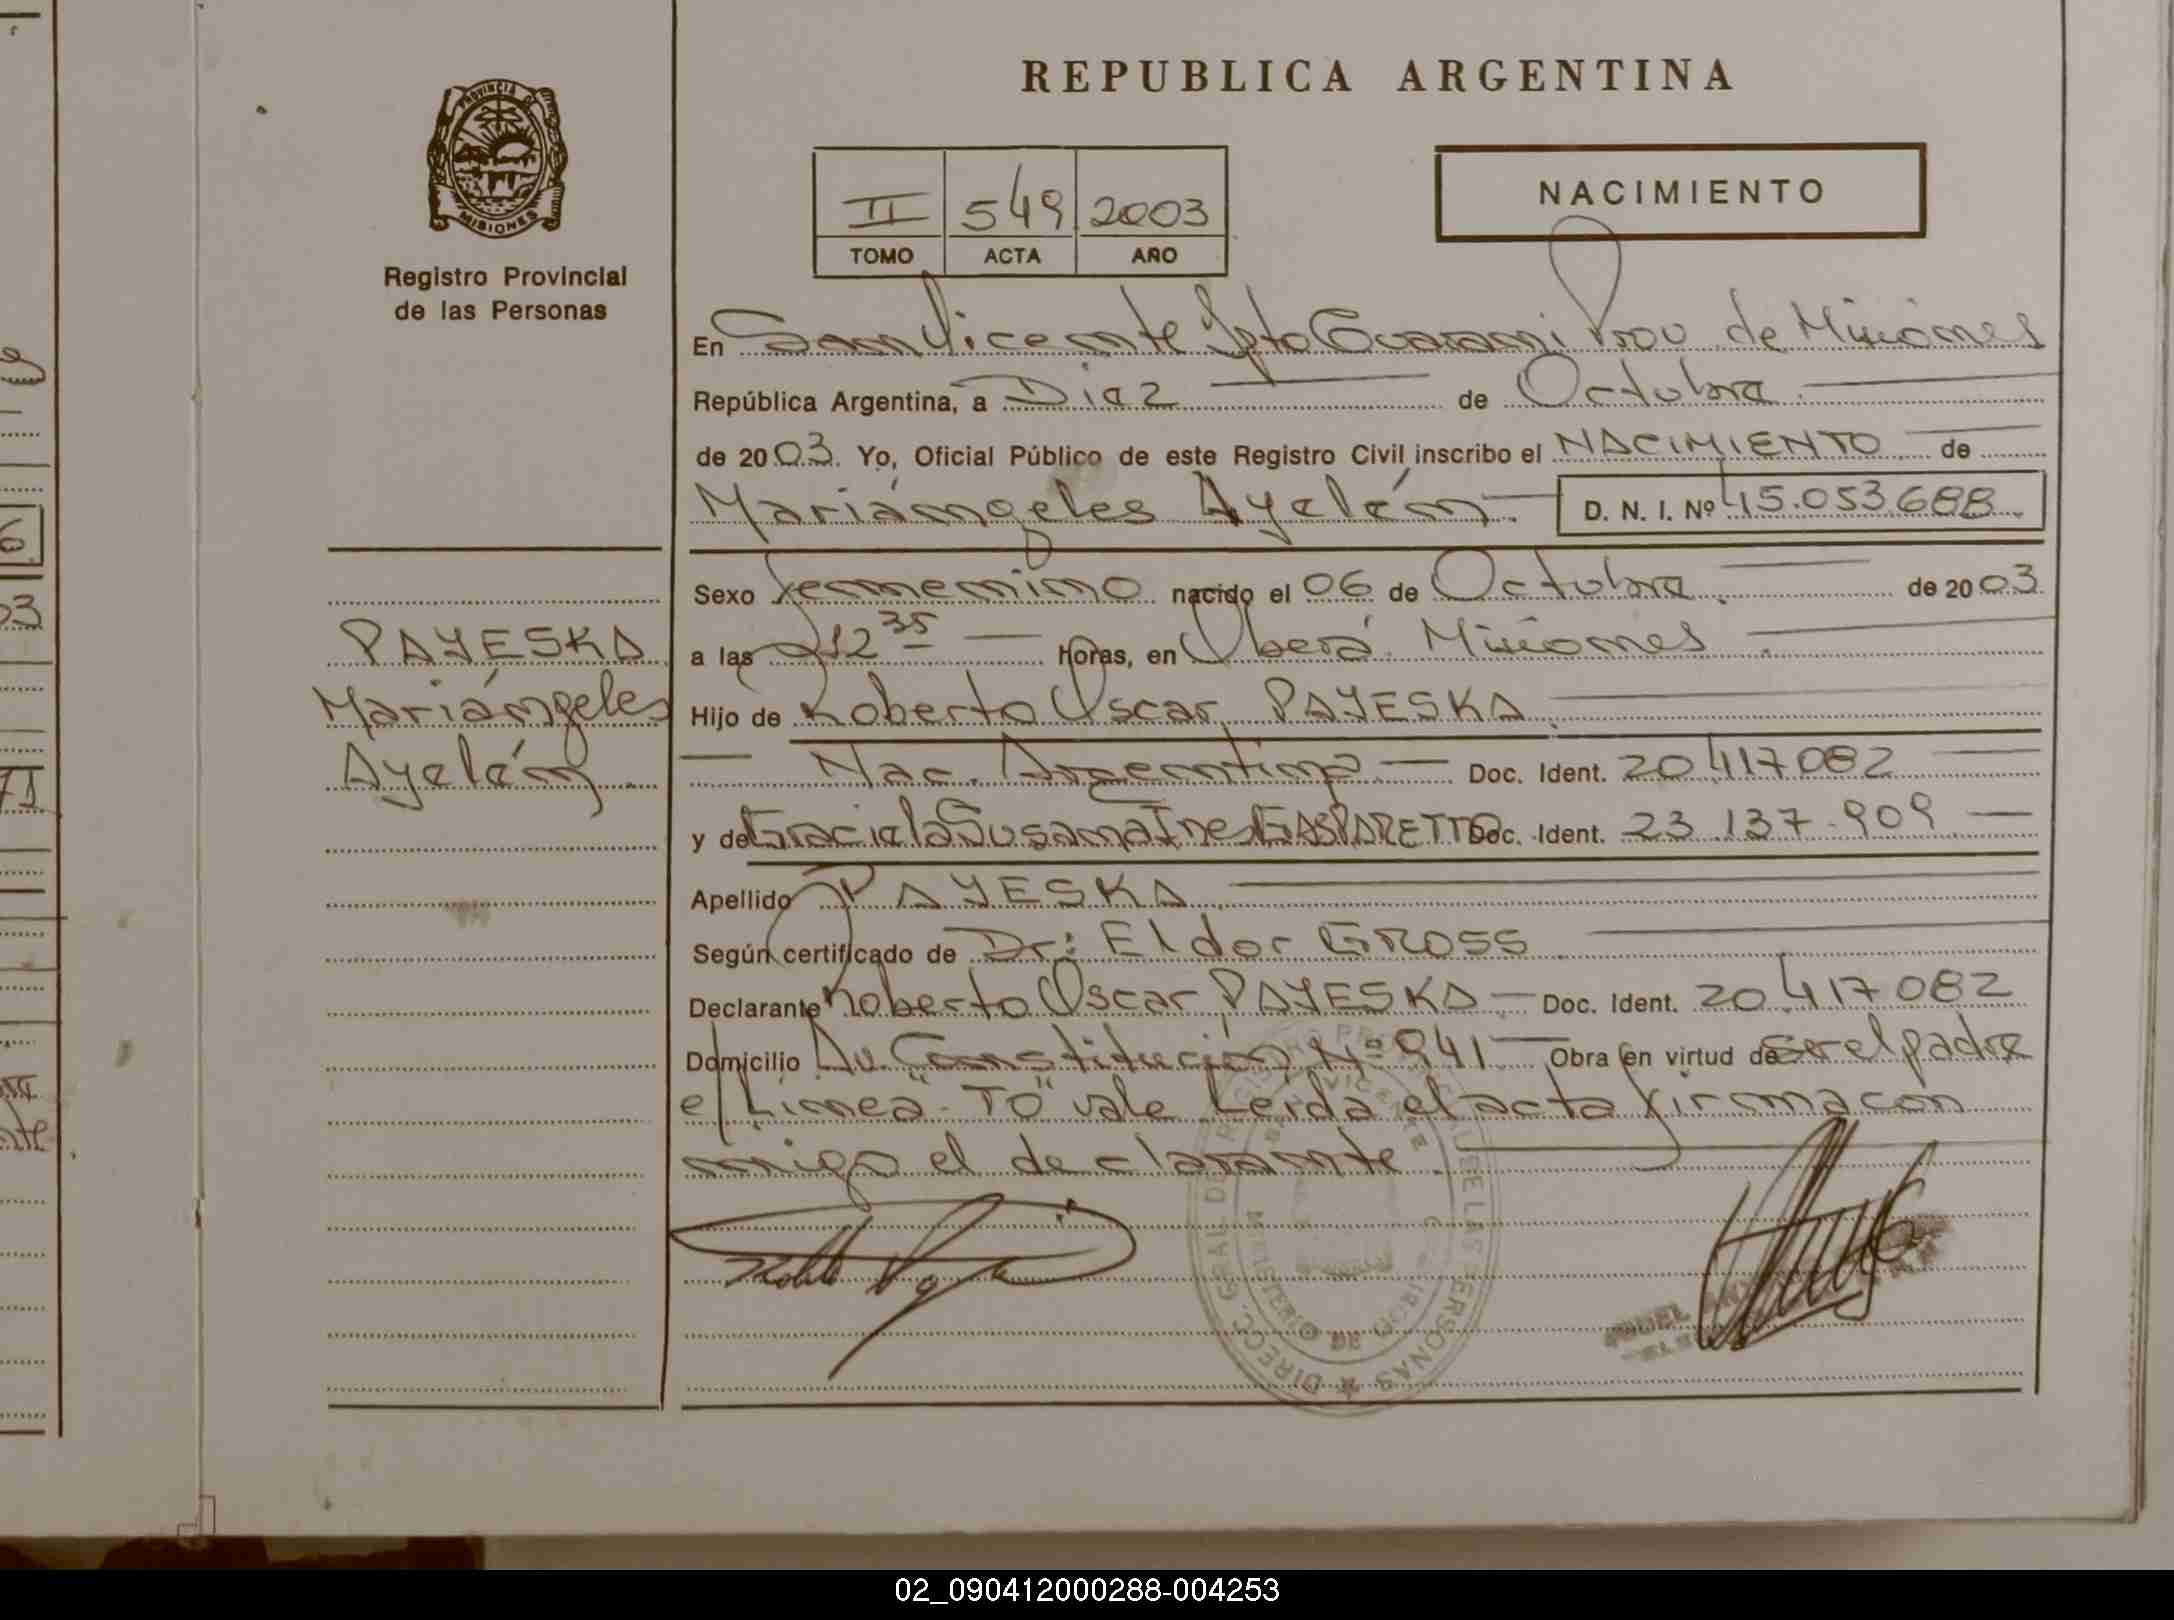 REPUBLICA ARGENTINA
PROVINCIA DE
MISIONES
Registro Provincial
de las Personas
II 549 2003
TOMO ACTA AÑO
NACIMIENTO
En San Vicente Dpto Guarani Prov de Misiones
República Argentina, a Diez de Octubre
de 2003. Yo, Oficial Público de este Registro Civil inscribo el NACIMIENTO de
Mariángeles Ayelén. D. N. I. Nº 45.053.688.
Sexo femenino nacido el 06 de Octubre. de 2003
a las 12 35 Horas, en Oberá. Misiones.
Hijo de Roberto Oscar PAYESKA.
Nac. Argentina Doc. Ident. 20.417.082
y de Graciela Susana Ines GASPARETTO Doc. Ident. 23.137.909
Apellido PAYESKA.
Según certificado de Dr: Eldor GROSS
Declarante Roberto Oscar PAYESKA Doc. Ident. 20.417.082
Domicilio Av. Constitución Nº 941 Obra en virtud de ser el padre
e/Linea "TO" vale Leida el acta firma con
migo el declarante.
PAYESKA
Mariángeles
Ayelén.
DIRECC. GRAL. DE LAS PERSONAS
02_090412000288-004253